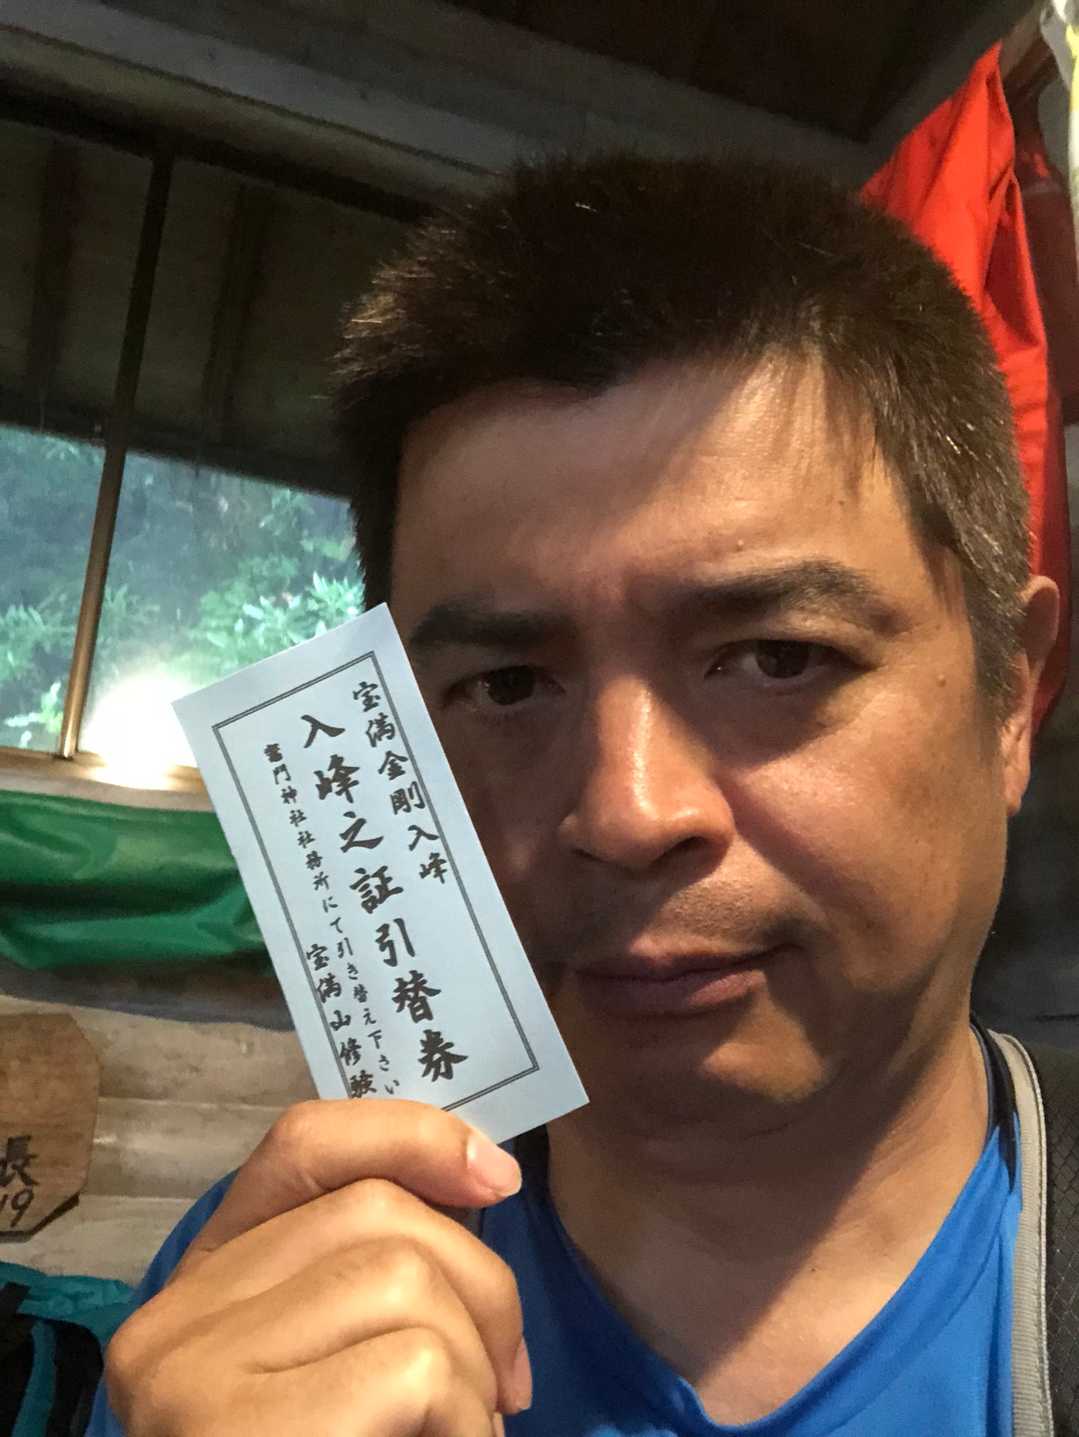 宝満金剛入峰
入峰之証引替券
竈門神社社務所にて引き替え下さい
宝満山修験
長
19